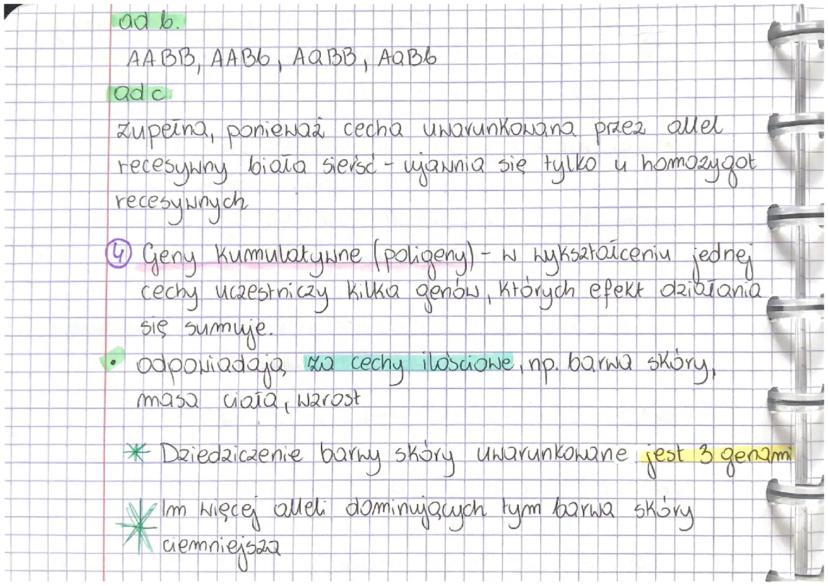 ad b.
AABB, AABb, AaBB, AaBb
ad c
zupełna, ponieważ cecha uwarunkowana przez allel
recesywny biała sierść - ujawnia się tylko u homozygot
recesywnych
4 Geny kumulatywne (poligeny) - w wykształceniu jednej
cechy uczestniczy kilka genów, których efekt działania
się sumuje.
• odpowiadają za cechy ilościowe, np. barwa skóry,
masa ciała, wzrost
* Dziedziczenie barwy skóry uwarunkowane jest 3 genami
* Im więcej alleli dominujących tym barwa skóry
ciemniejsza